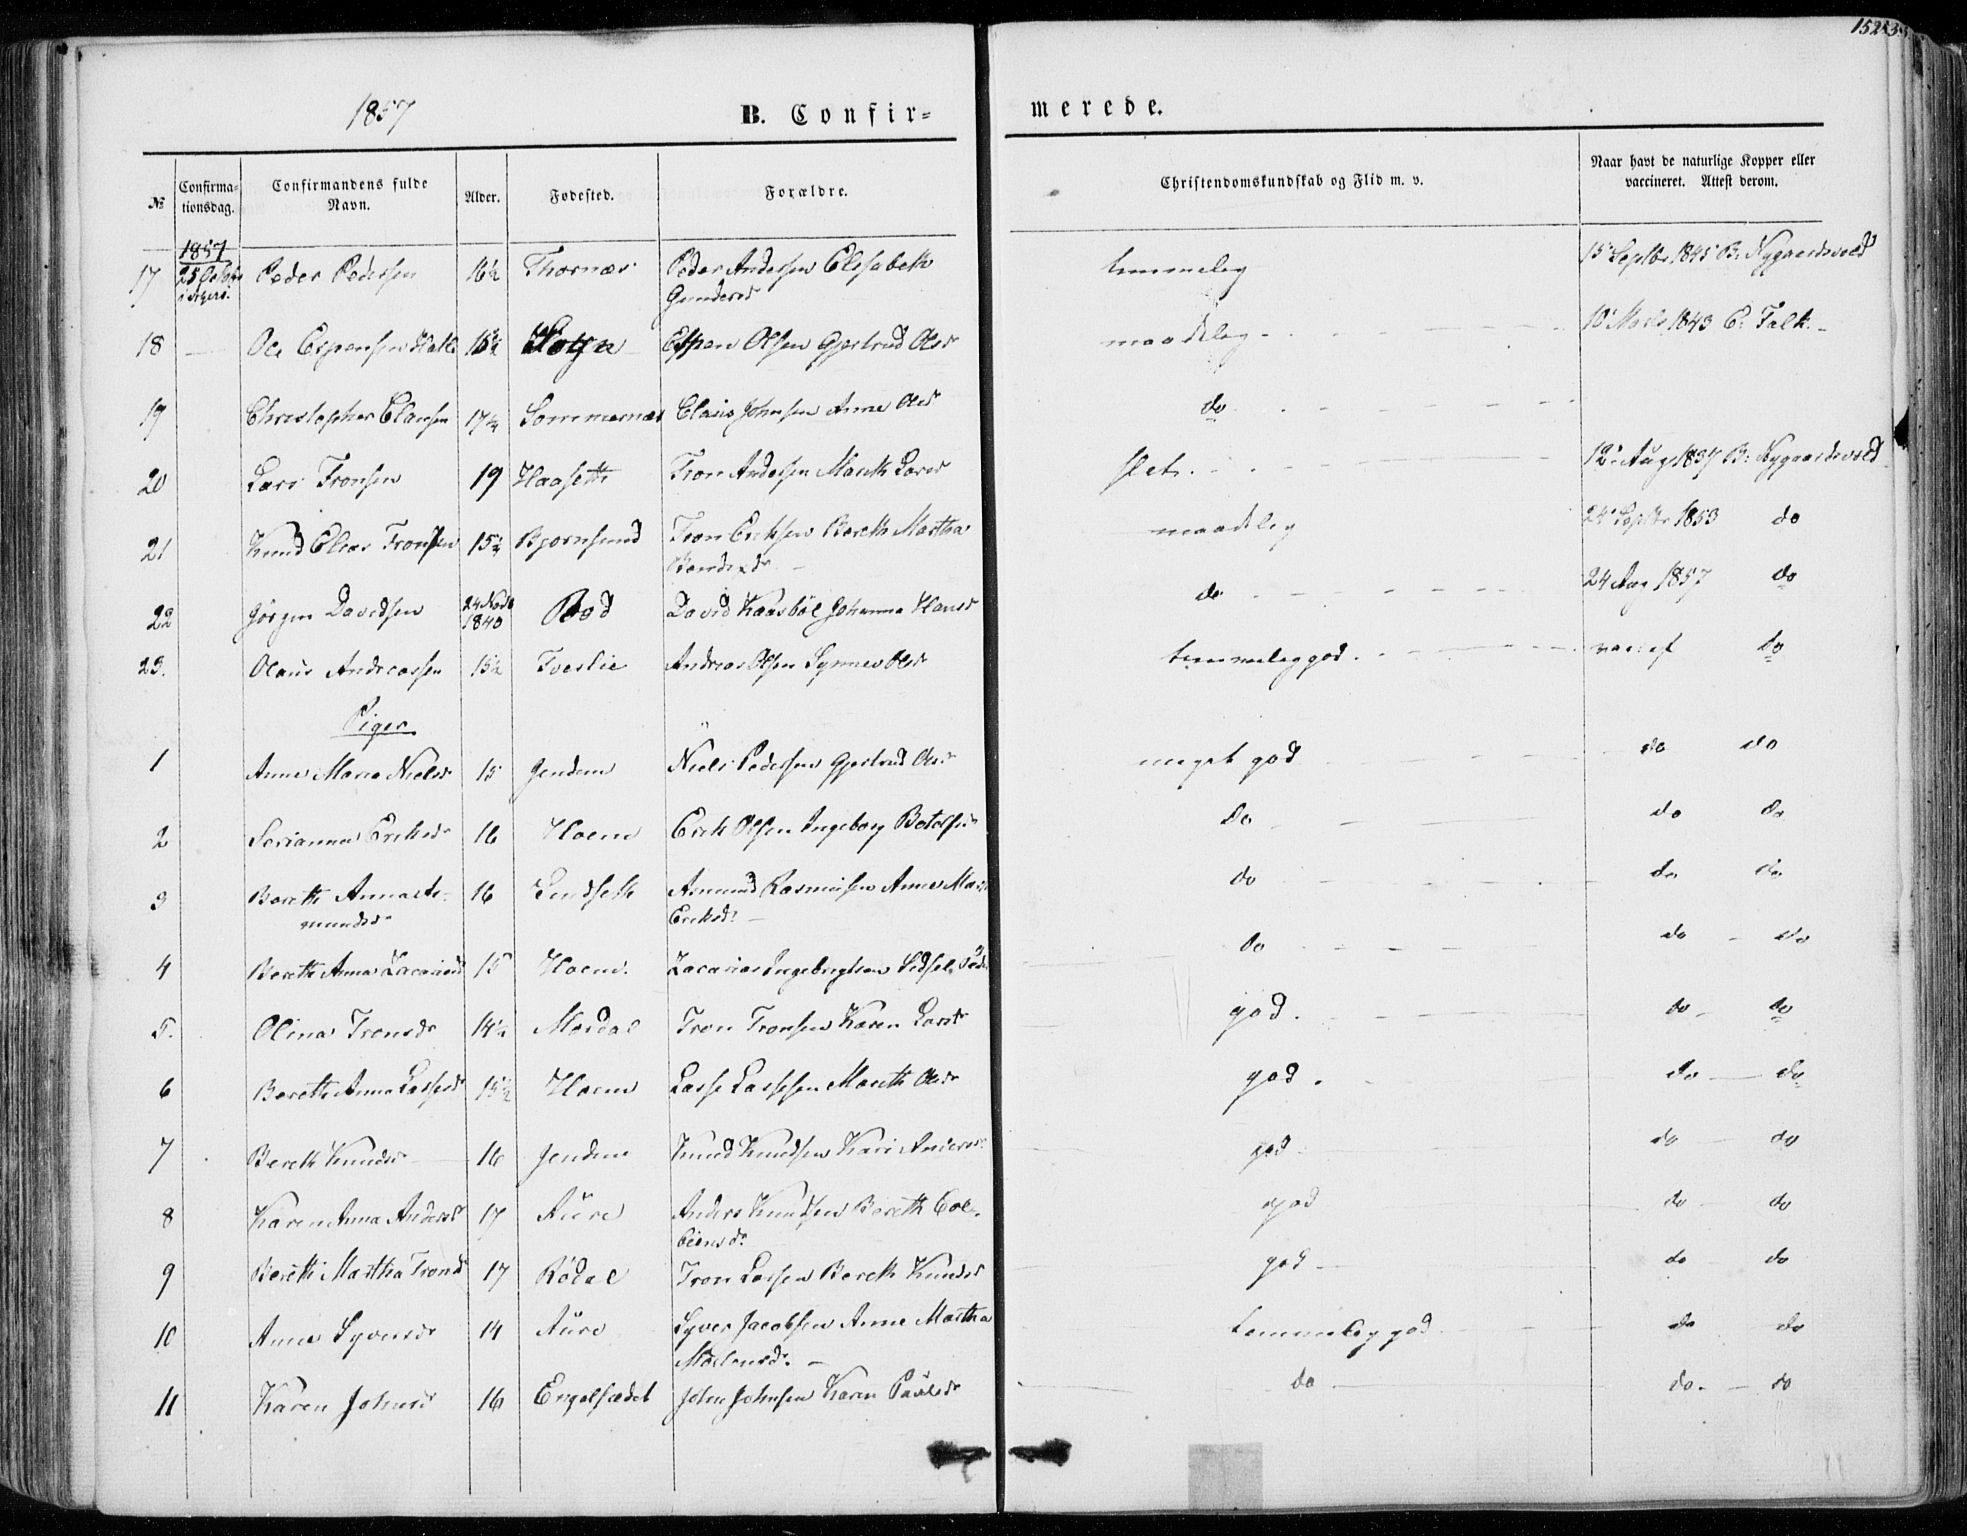 152
1857
B. Confirmerede.
№ Confirmationsdag. Confirmandens fulde Navn. Alder. Fødested. Forældre. Christendomskundskab og Flid m. v. Naar havt de naturlige Kopper eller vaccineret. Attest derom.
1857
17 25 Octbr Peder Pedersen 16½ Thornæs Peder Andersen Elisabeth Gundersd temmelig 15 Septbr 1845 B: Nygaardsvold
18 — Ole Espensen 15½ Espen Olsen Gjertrud Olsd maadelig 10 1843 C: Falk.
19 Christopher Clausen 17¼ Sommernæs Claus Johnsen Anne Olsd do
20 Lars Tronsen 19 Haaseth Tron Andersen Marith Larsd slet. 12 Aug 1837 B: Nygaardsvold
21 Knud Elias Tronsen 15¼ Bjørnsund Tron Eriksen Bereth Martha maadelig 24 Septbr 1853 do
22 Jørgen Davidsen 24 Novb 1840 Bod David Kaasbøl Johanna Hansd do 24 Aug 1857 do
23. Olaus Andreassen 15½ Tverlie Andreas Olsen Synnev Olsd temmelig god. do
Piger
1 Anne Maria Nielsd 15 Jendem Niels Pedersen Gjertrud Olsd meget god do do
2 Serianna Eriksd 16 Hoem Erik Olsen Ingeborg Botolfsd do do do
3 Bereth Anna Asmundsd 16 Lindseth Asmund Rasmusen Anne Mar. Eriksd. do do do
4 Bereth Anna Zacariasd 15 Hoem. Zacarias Ingebrigtsen Sidsel Pedersd do do do
5. Olina Tronsd 14½ Mordal Tron Tronsen Karen Larsd god. do do
6 Bereth Anna Lassesd 15½ Hoem Lasse Lassesen Marith Olsd god. do do
7 Bereth Knudsd 16 Jendem Knud Knudsen Kari Andersd god do do
8 Karen Anna Andersd 17 Aure Anders Knudsen Bereth Colbeinsd. god do do
9 Bereth Martha Tronsd 17 Rødal Tron Larsen Bereth Knudsd god do do
10 Anne Syversd 14 Aure Syver Jacobsen Anne Martha temmelig god do do
11 Karen Johnsd 16 Engelsædet John Johnsen Karen Paulsd do do. do